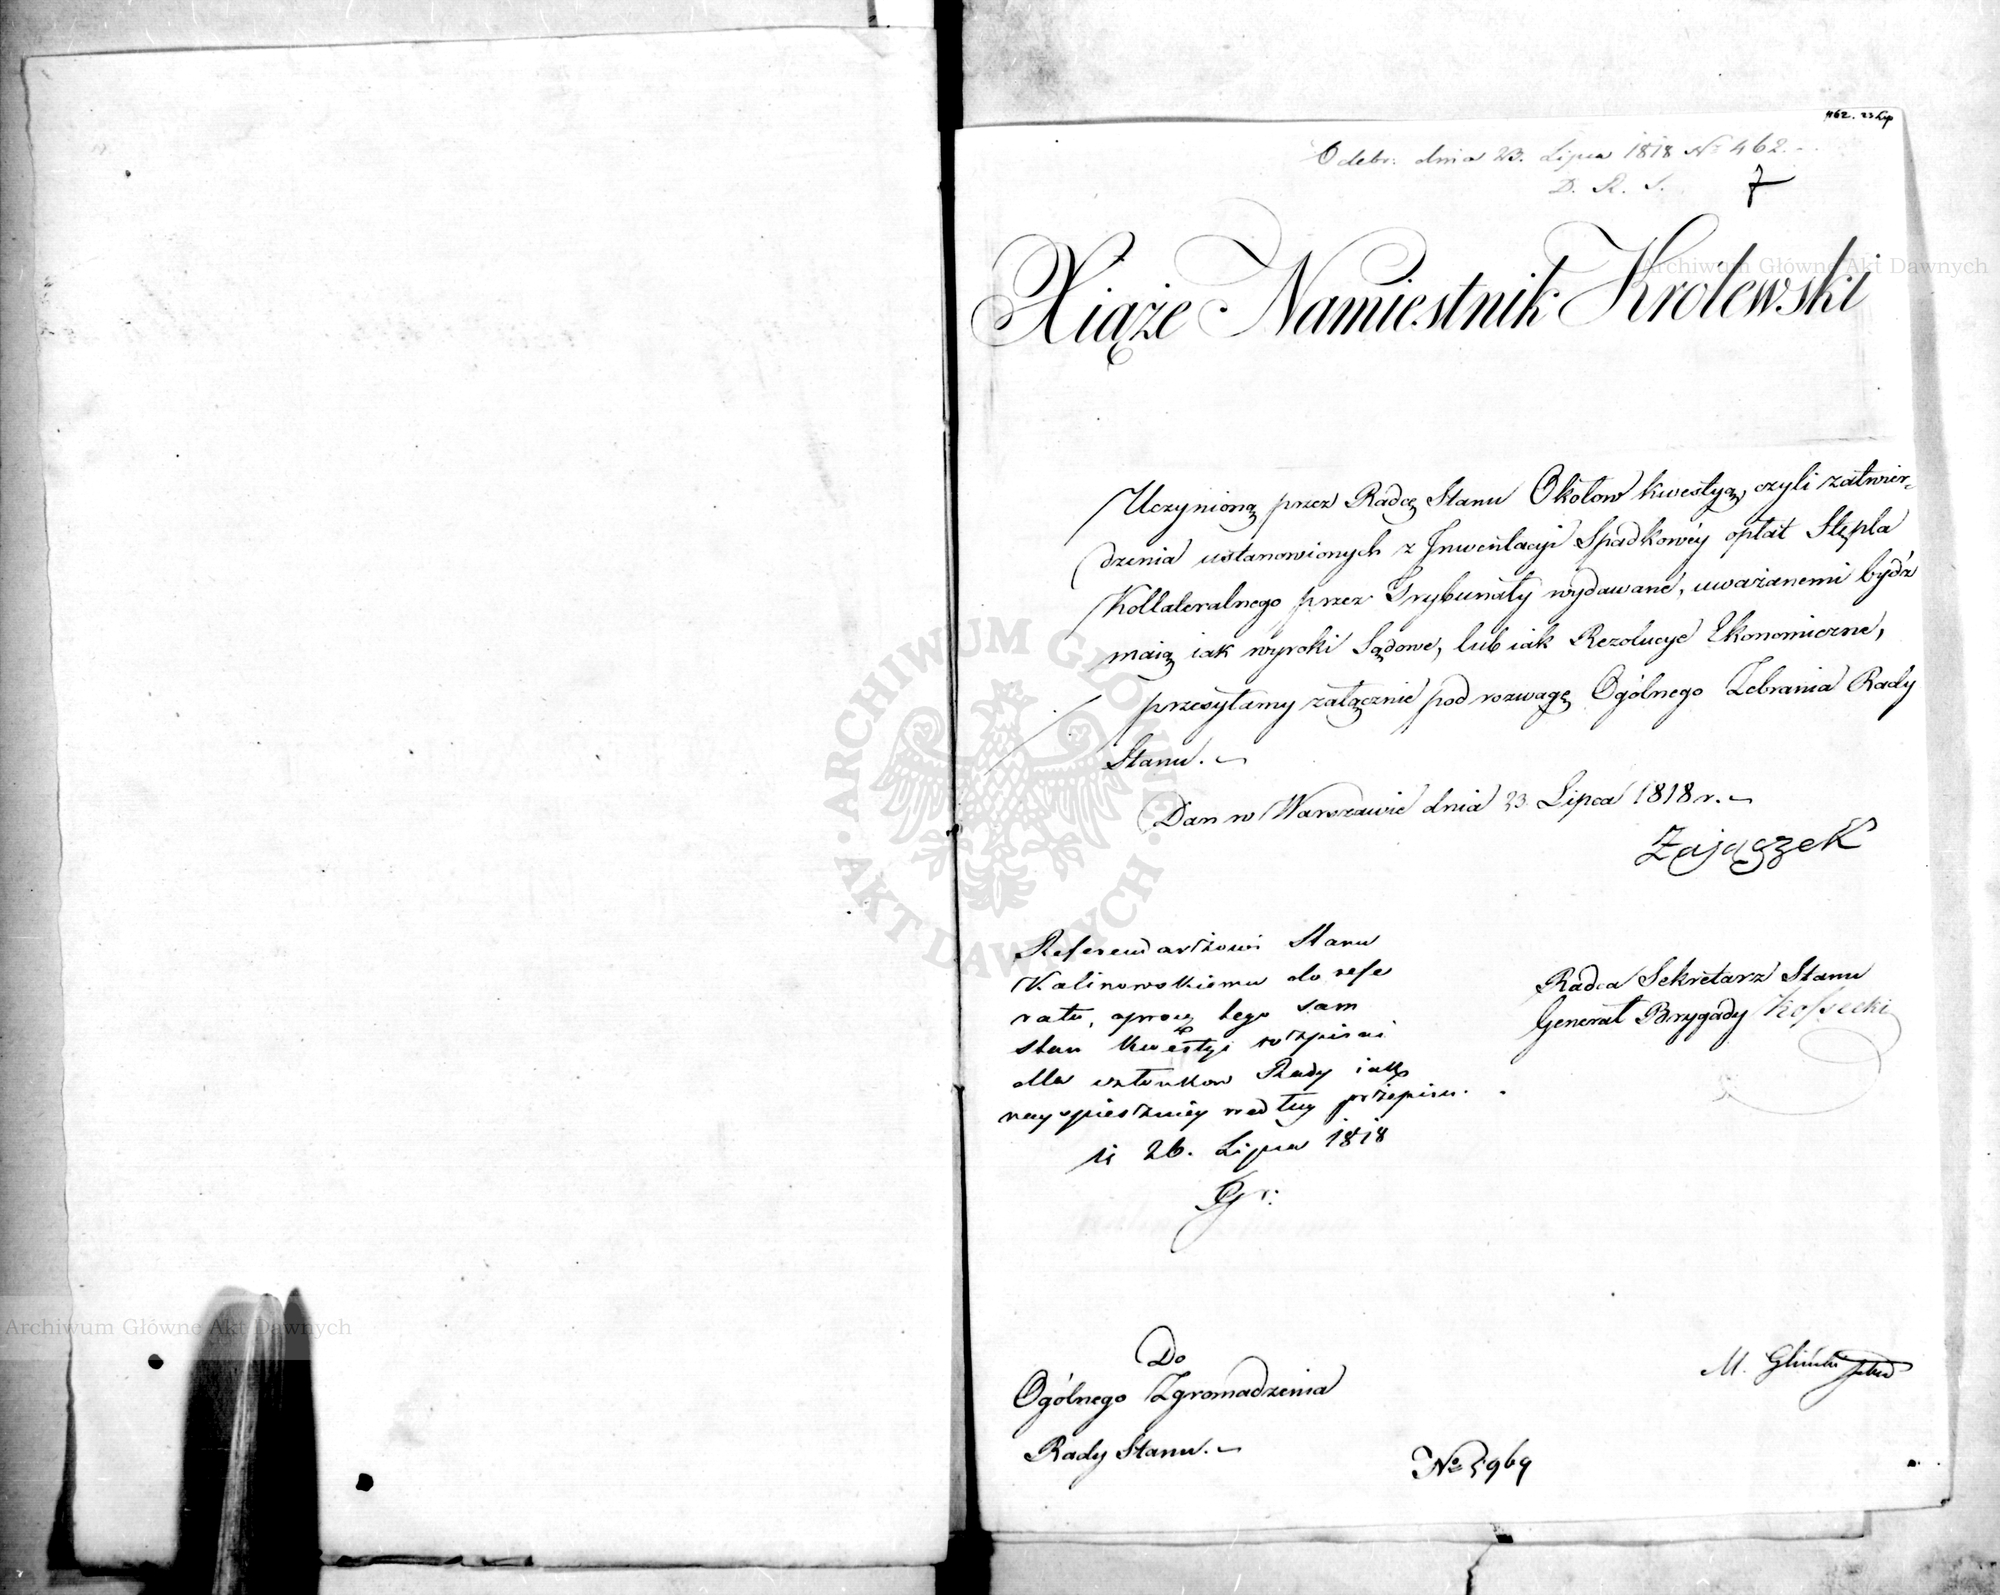 462. 23 Lip
Odebr. dnia 23. Lipca 1818 No 462.
D. R. S.
7
Xiąże Namiestnik Królewski
Uczynioną przez Radcę Stanu Okołow kwestyą, czyli zatwier-
dzenia ustanowionych z Inwentacyi Spadkowéy opłat Stępla
Kollateralnego przez Trybunały wydawane, uważanemi bydź
maią iak wyroki Sądowe, lub iak Rezolucye Ekonomiczne,
przesyłamy załącznie pod rozwagę Ogólnego Zebrania Rady
Stanu.
Dan w Warszawie dnia 23. Lipca 1818 r.
Zajączek
Referendarzowi Stanu
Kalinowskiemu do refe
ratu, oprocz tego sam
stan kwestyi wypisać
dla członkow Rady iak
nayspieszniey według przepisu.
26. Lipca 1818
Gr:
Radca Sekretarz Stanu
Generał Brygady Kossecki
Do
Ogólnego Zgromadzenia
Rady Stanu.
M. Gliński
No 5969
Archiwum Główne Akt Dawnych
Archiwum Główne Akt Dawnych
ARCHIWUM GŁÓWNE AKT DAWNYCH